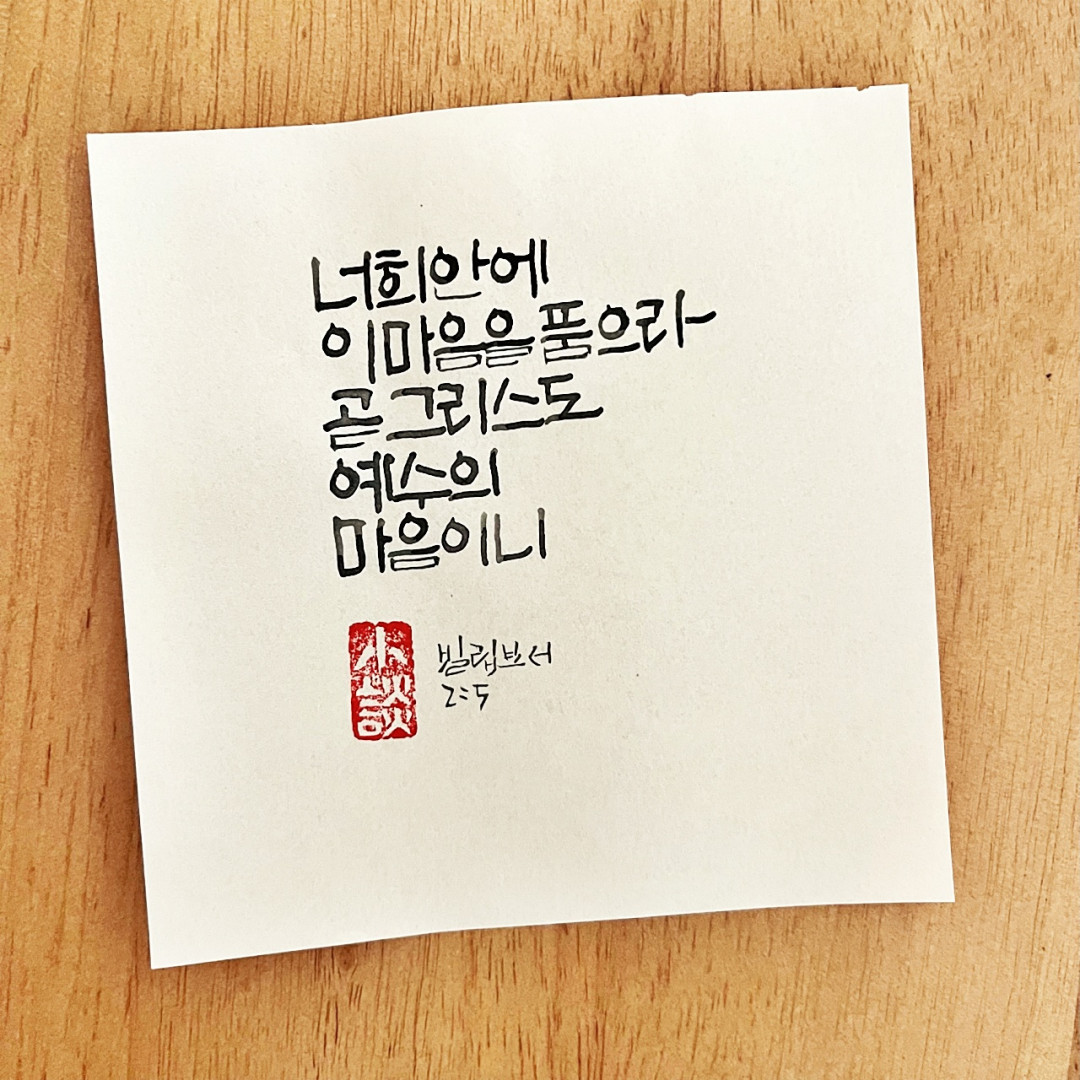 너희안에
이마음을 품으라
곧 그리스도
예수의
마음이니
小談
빌립보서
2:5